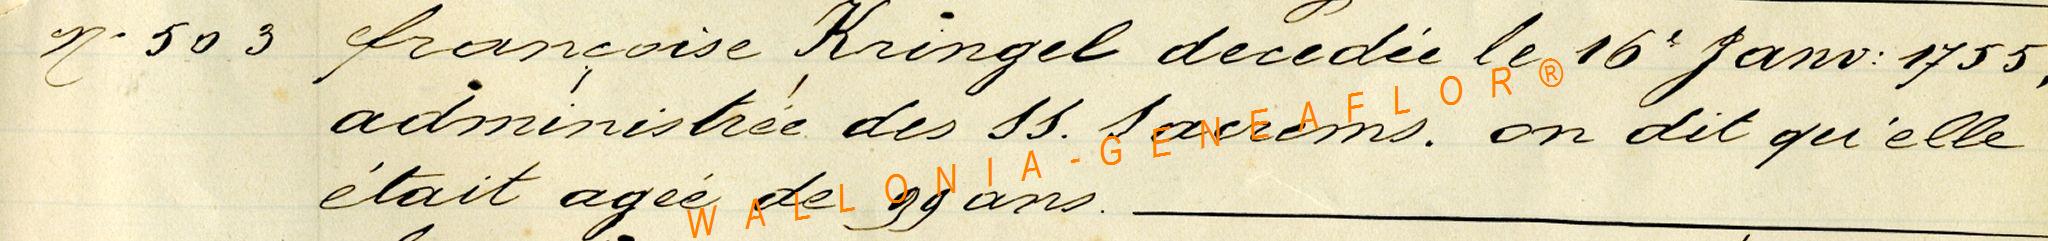 N° 503 françoise Kringel decedée le 16e Janv: 1755,
administrée des SS. Sacrems. on dit qu'elle
était agée de 99 ans.
WALLONIA-GENEAFLOR®